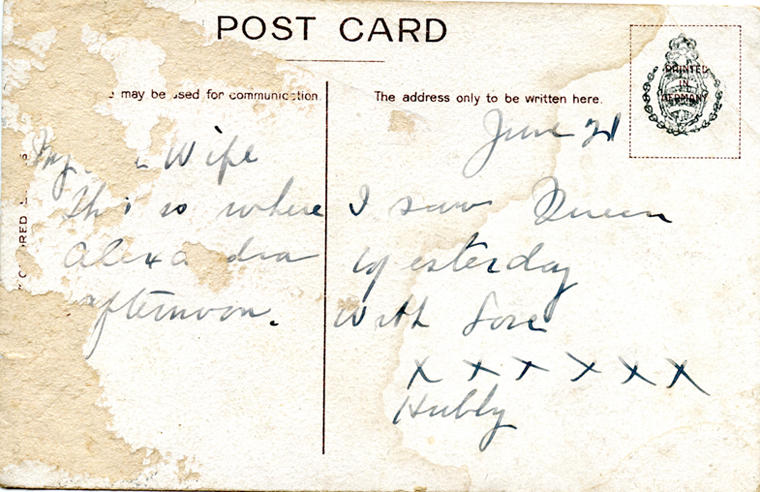 POST CARD
may be used for communication
The address only to be written here.
PRINTED
IN
GERMANY
June 21
My Wife
This is where I saw Queen
Alexandra yesterday
afternoon. With Love
x x x x x x
Hubby